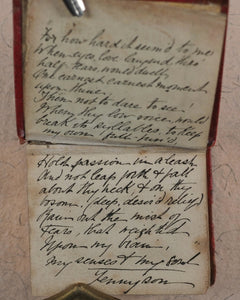 how hard it seem'd to me
When eyes, love languid thro'
half tears, would dwell
One earnest, earnest moment
upon mine,
Then not to dare to see!
When thy low voice, would
break its syllables, to keep
my own full tun'd
Hold passion in a leash
And not leap forth & fall
about thy neck & on thy
bosom, (deep, desir'd relief)
Rain out the mist of
tears, that weigh'd
Upon my brain,
my senses & my soul
Tennyson